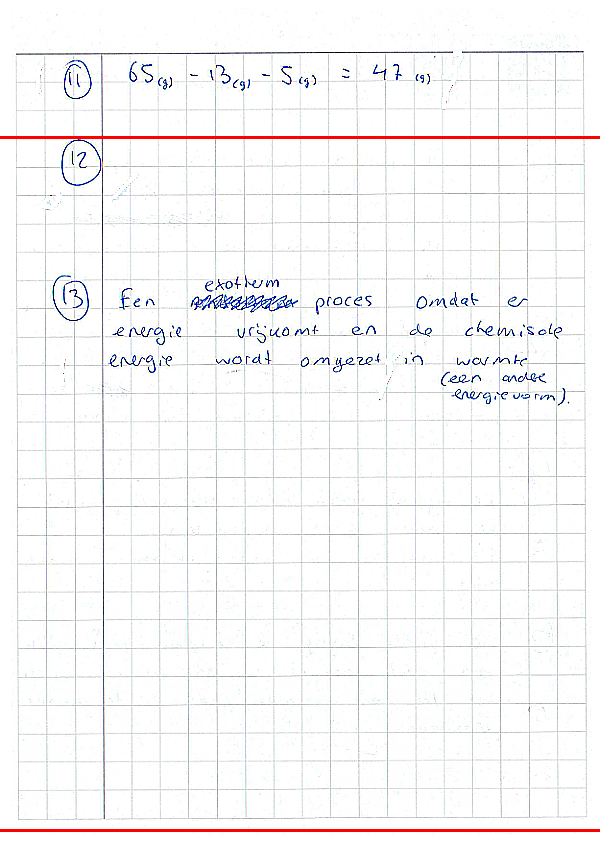 11 65(g) - 13(g) - 5(g) = 47 (g)
12
13 Een exotherm proces omdat er
energie vrijkomt en de chemische
energie wordt omgezet in warmte
(een andere
energievorm).